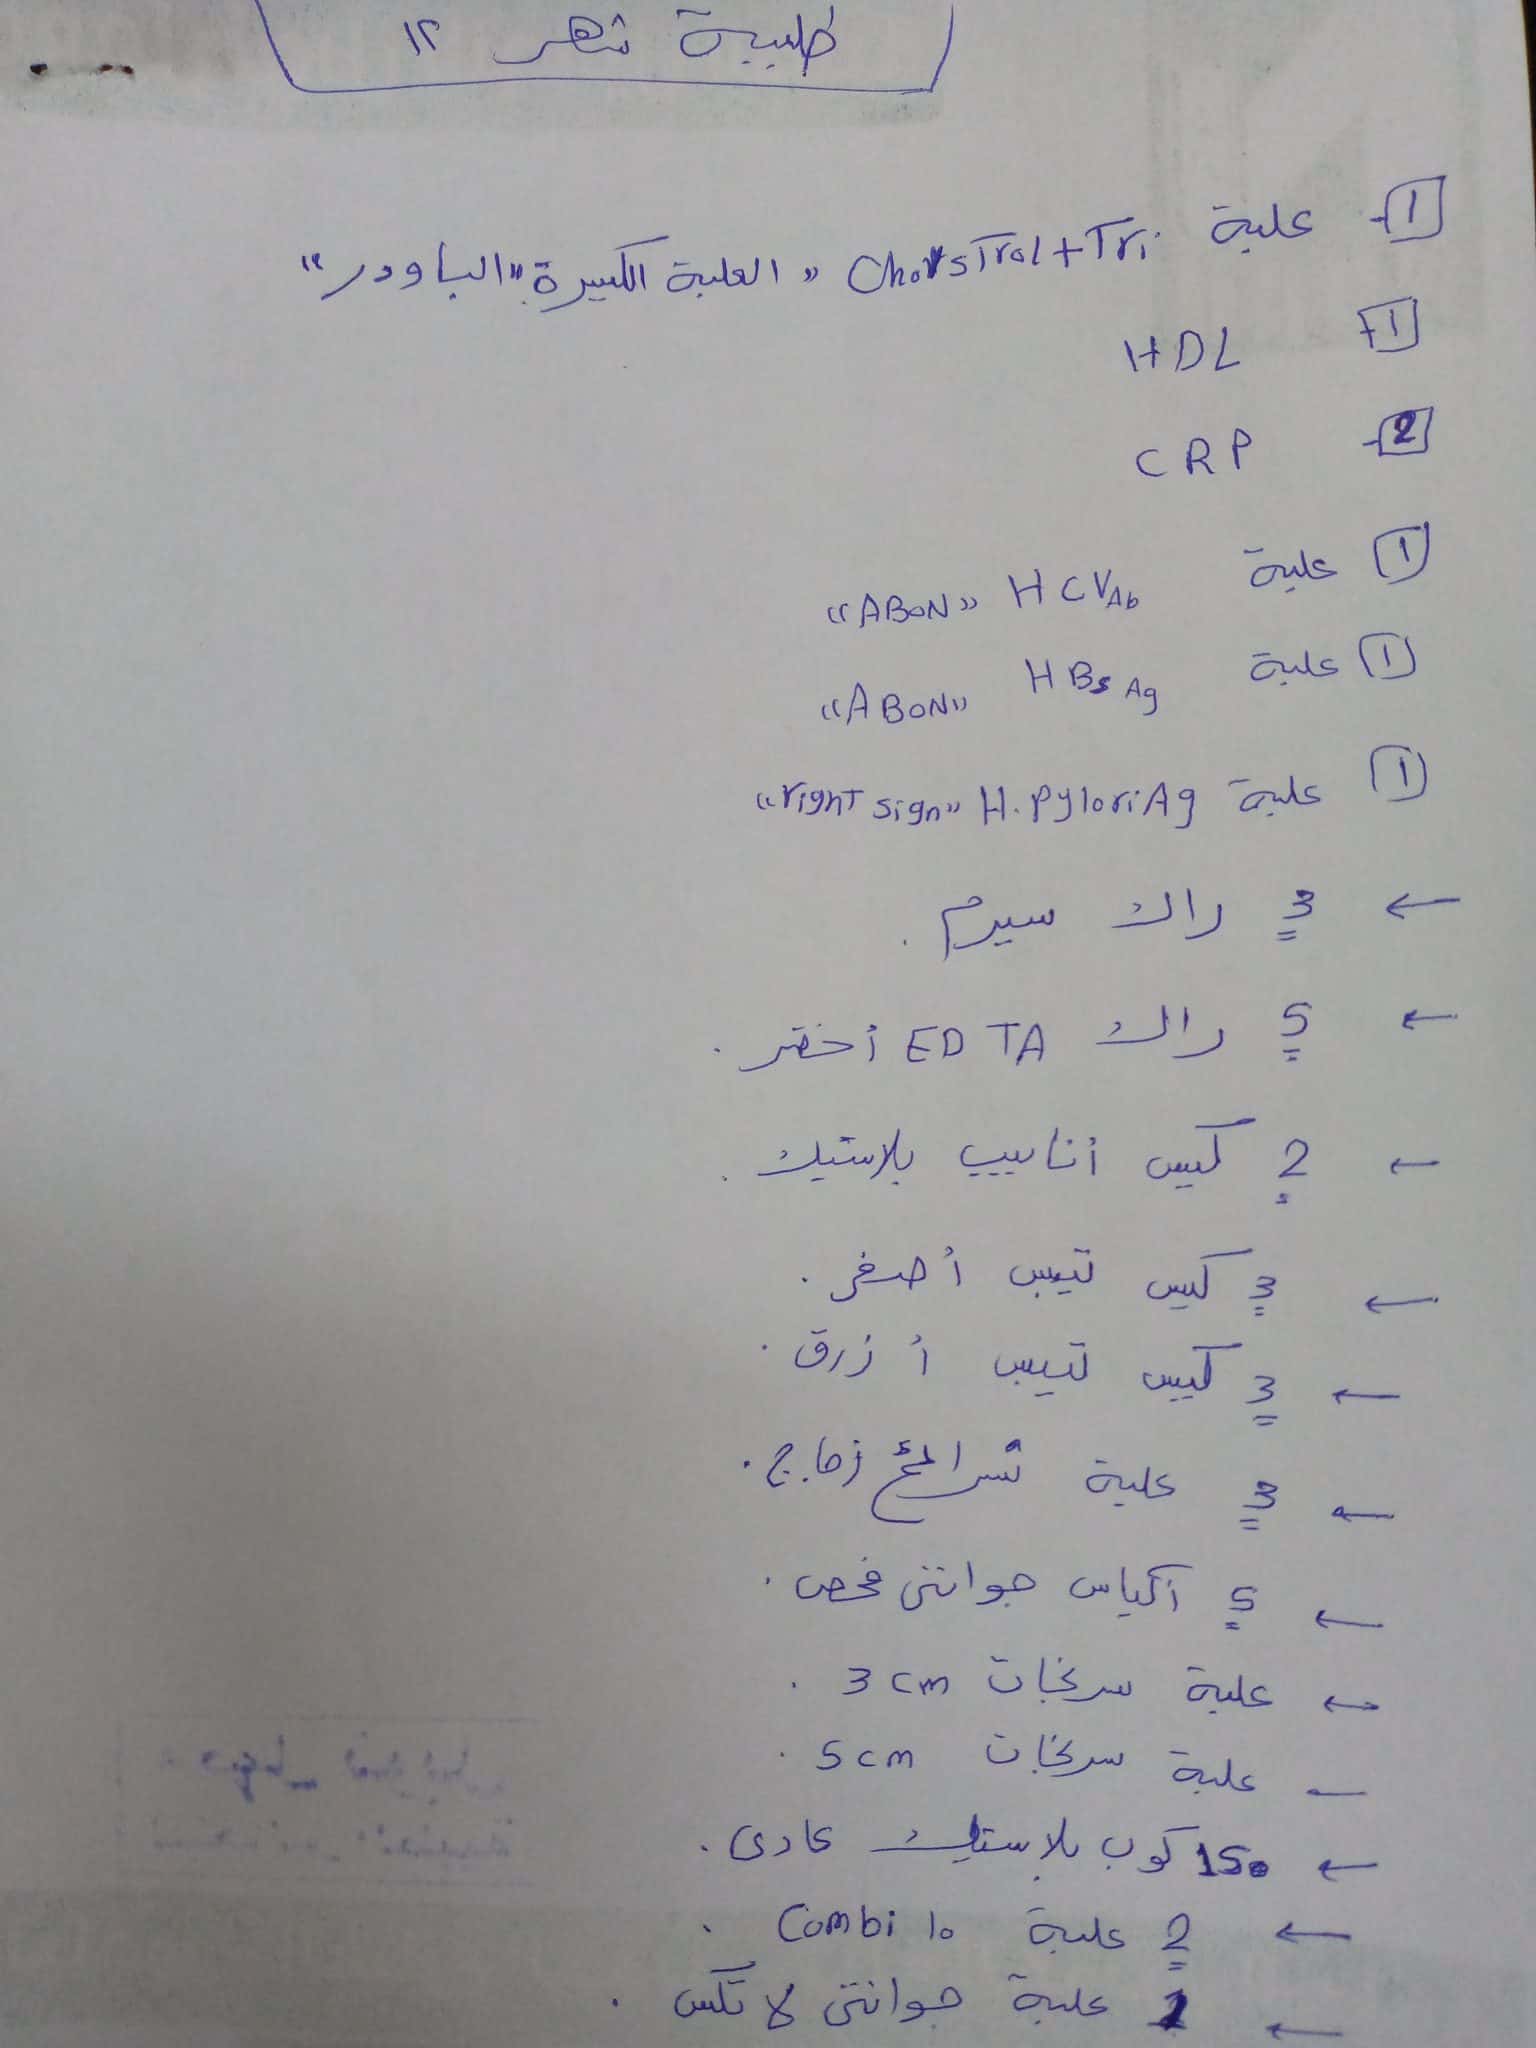 طلبية شهر ١٢
1- علبة CholesTrol + Tri "العلبة الكبيرة" "الباودر"
1- HDL
2- CRP
1 علبة HCV Ab "ABON"
1 علبة HBs Ag "ABON"
1 علبة H.Pylori Ag "right sign"
← 3 راك سيرم .
← 5 راك EDTA أخضر .
← 2 كيس أنابيب بلاستيك .
← 3 كيس تيبس أصفر .
← 3 كيس تيبس أزرق .
← 3 علبة شرائح زجاج .
← 5 أكياس جوانتى فحص .
← علبة سرنجات 3 cm .
← علبة سرنجات 5 cm .
← 150 كوب بلاستيك عادى .
← 2 علبة Combi 10 .
← 1 علبة جوانتى لاتكس .